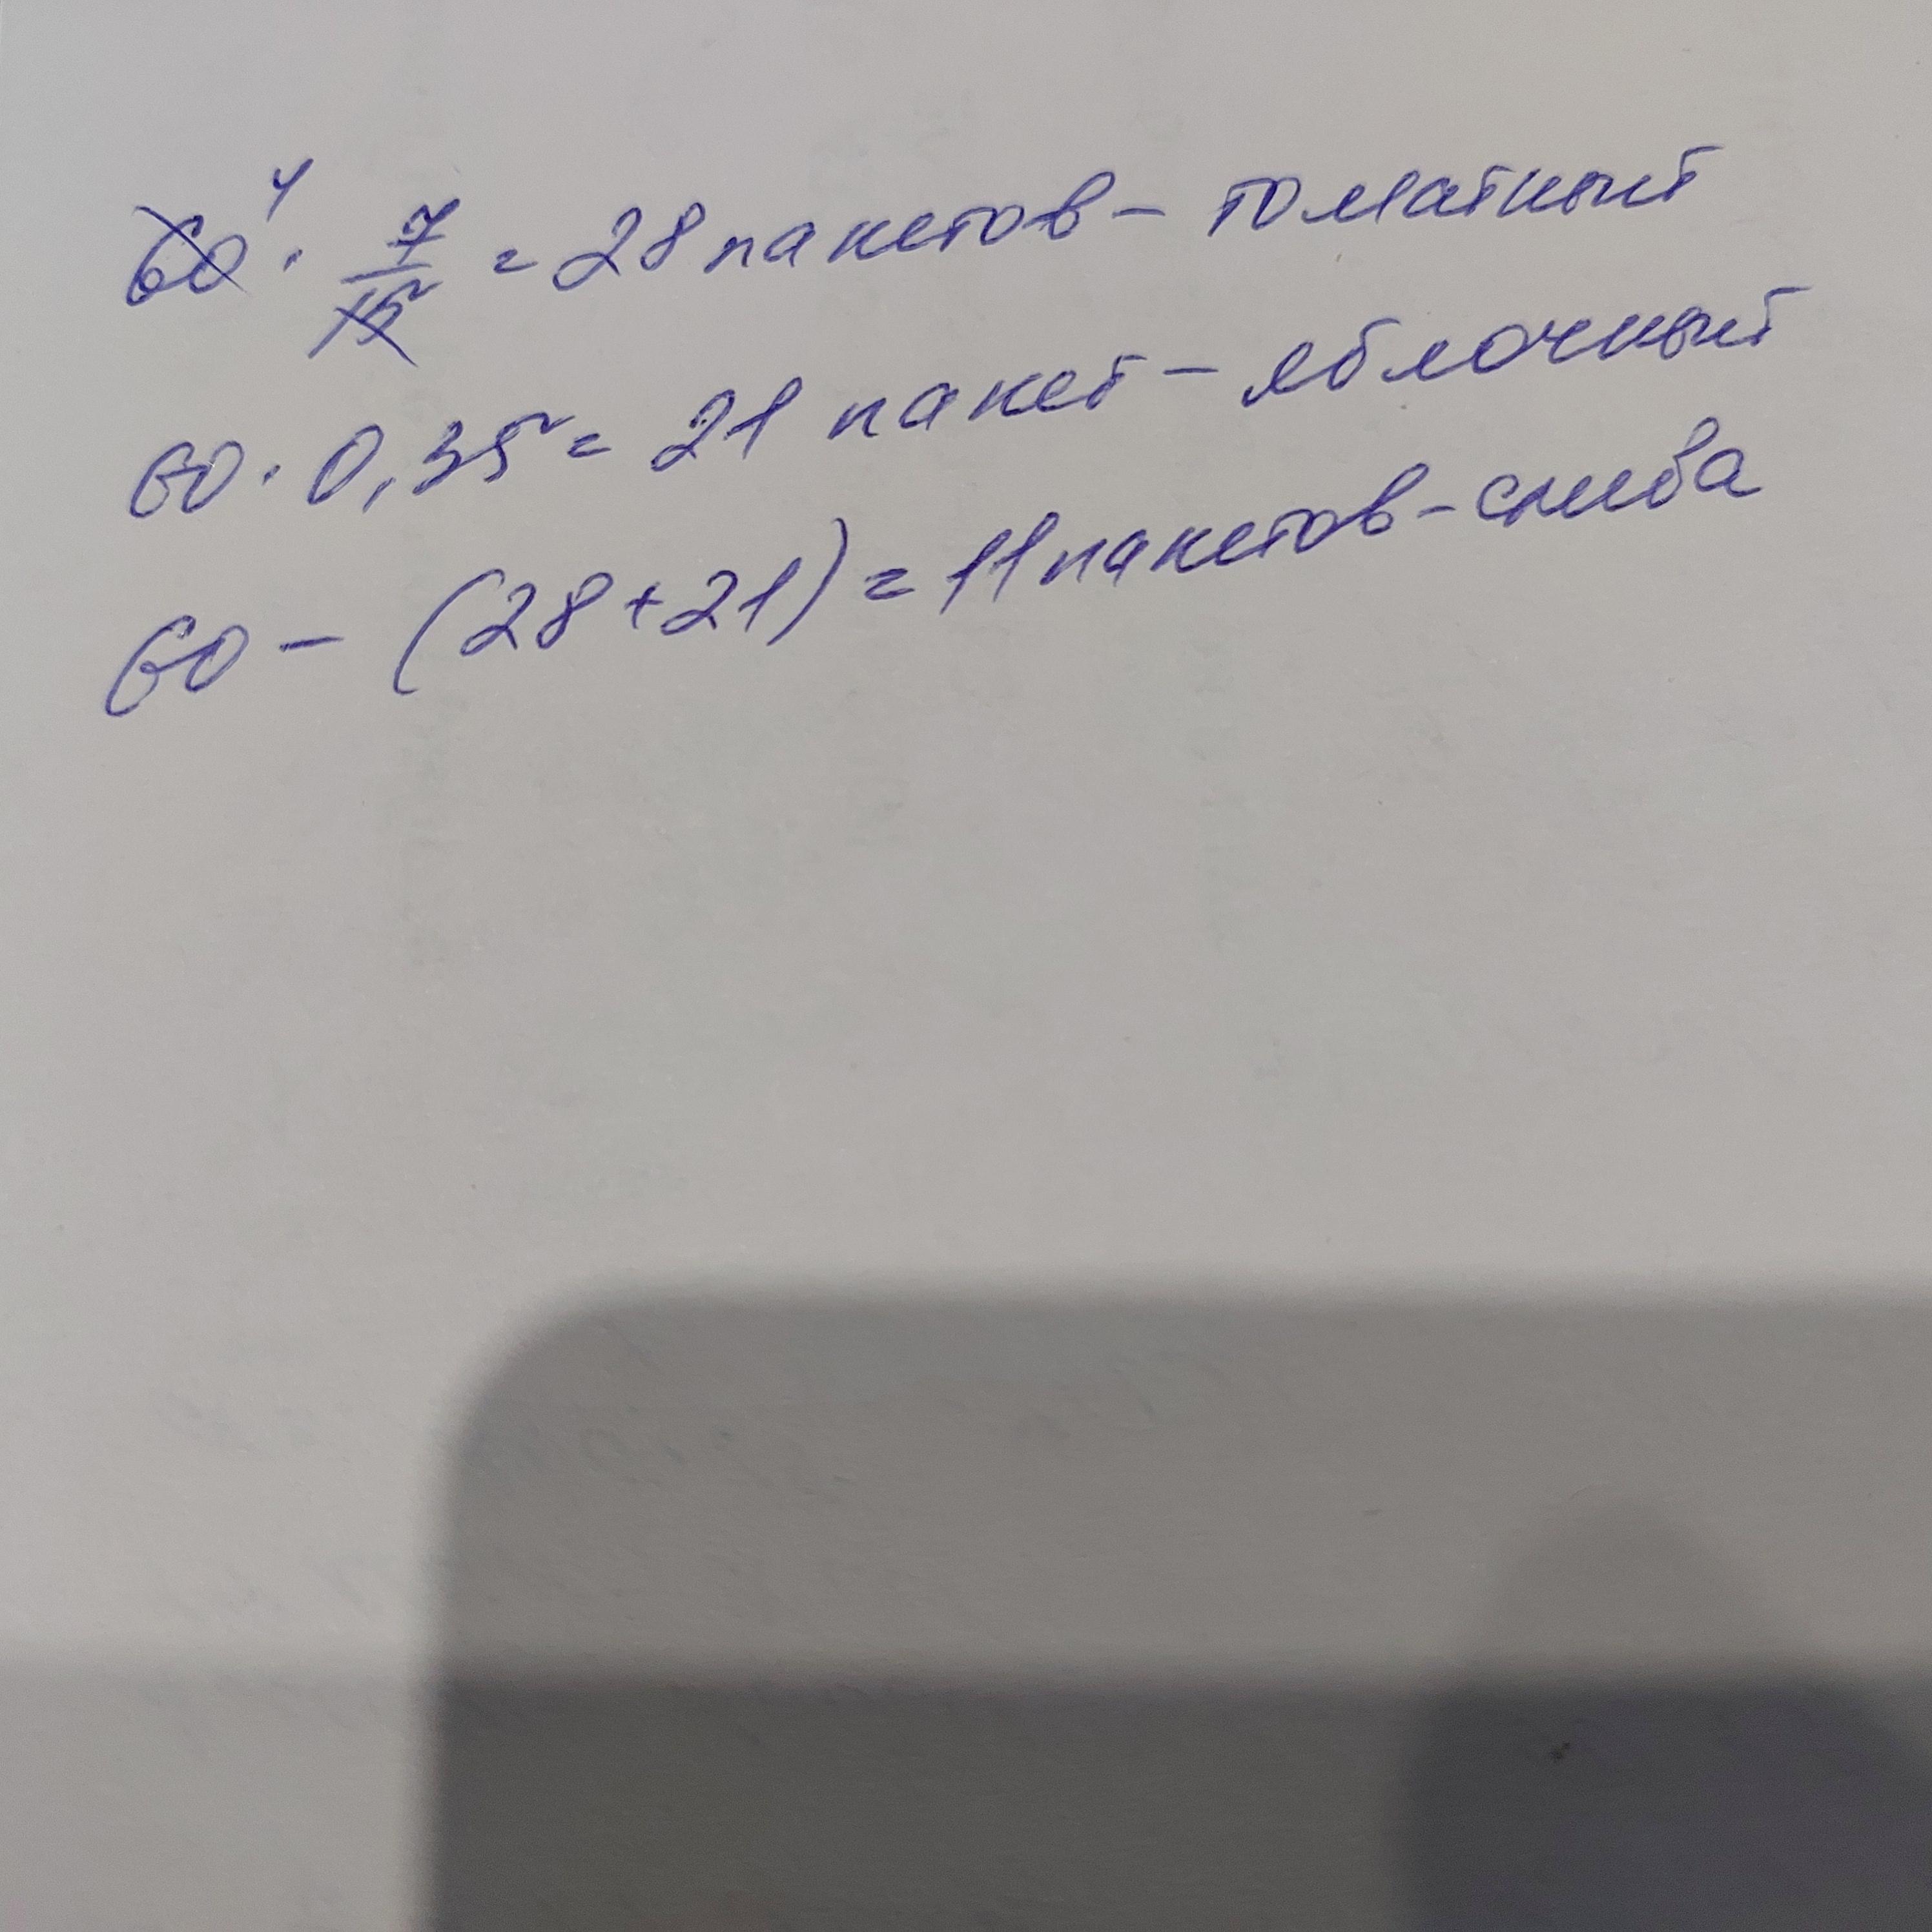 60⁴ · 7/15 = 28 пакетов – томатный
60 · 0,35 = 21 пакет – яблочный
60 – (28+21) = 11 пакетов – слива